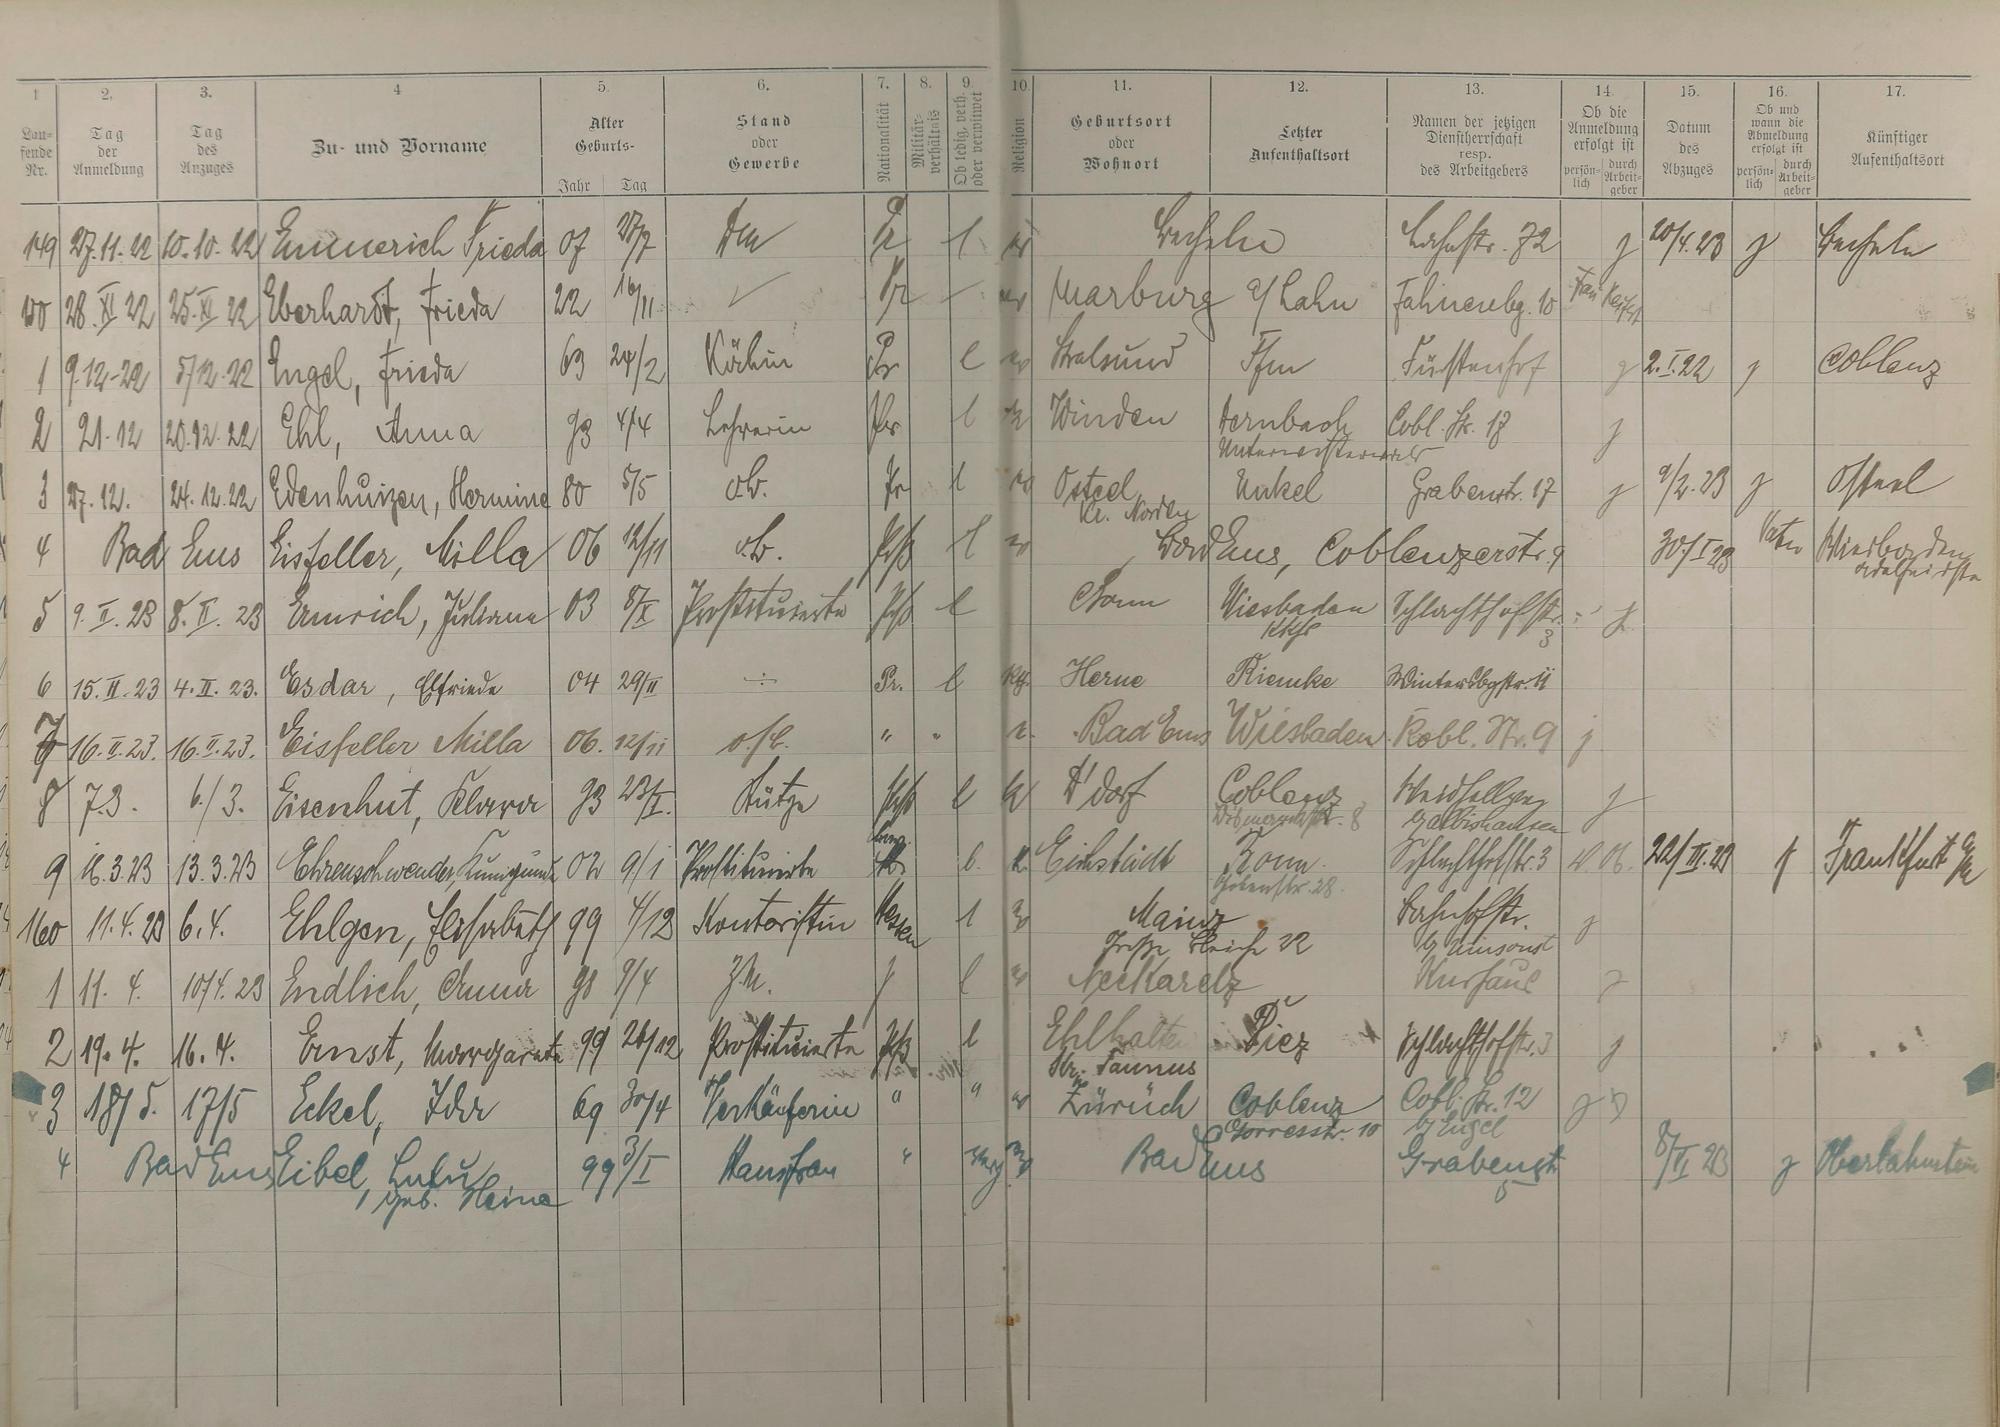 1 2. 3. 4 5. 6. 7. 8. 9. 10. 11. 12. 13. 14. 15. 16. 17.
Lau-
fende
Nr.
Tag
der
Anmeldung
Tag
des
Anzuges
Zu- und Vorname
Alter
Geburts-
Jahr Tag
Stand
oder
Gewerbe
Nationalität
Militär-
verhältnis
Ob ledig, verh.
oder verwitwet
Religion
Geburtsort
oder
Wohnort
Letzter
Aufenthaltsort
Namen der jetzigen
Dienstherrschaft
resp.
des Arbeitgebers
Ob die
Anmeldung
erfolgt ist
persön-
lich
durch
Arbeit-
geber
Datum
des
Abzuges
Ob und
wann die
Abmeldung
erfolgt ist
persön-
lich
durch
Arbeit-
geber
Künftiger
Aufenthaltsort
149 27.11.22 10.10.22 Emmerich Frieda 07 27/7 Dm Pr l Becheln Lahnstr. 72 j 20/4.23 j Becheln
150 28.XI 22 25.XI 22 Eberhardt, Frieda 22 16/11 Pr Marburg a/Lahn Fahnenbg. 10 Frau
1 9.12-22 5/12.22 Engel, Frieda 63 24/2 Köchin Pr l Stralsund Ffm Fürstenhof j 2.I.22 j Coblenz
2 21.12 20.12.22 Ehl, Anna 93 4/4 Lehrerin Pr l Winden Dernbach Cobl. Str. 17 j
Unterwesterwald
3 27.12. 24.12.22 Edenhuizen, Hermine 80 5/5 o.B. Pr l Osteel Unkel Grabenstr. 17 j 9/2.23 j Osteel
Kr. Norden
4 Bad Ems Eisfeller, Milla 06 12/11 o.B. Prß l Bad Ems, Coblenzerstr. 9 30/I 23 Vater Wiesbaden
5 9.II.23 8.II.23 Emrich, Juliane 03 8/X Prostituierte Prß l Bonn Wiesbaden Schlachthofstr. j
3
6 15.II.23 4.II.23. Esdar, Elfriede 04 29/II ÷ Pr. l Herne Riemke Wintersbgstr. 11
7 16.II.23. 16.II.23. Eisfeller Milla 06. 12/11 " " Bad Ems Wiesbaden Kobl. Str. 9 j
8 7.3. 6./3. Eisenhut, Klara 93 23/I. Stütze Prß l k D'dorf Coblenz j
9 16.3.23 13.3.23 Ehrenschwender Kunigunde 02 9/1 Prostituierte l. k. Eichstädt Bonn Schlachthofstr. 3 22/III.23 j Frankfurt a/M
160 11.4.23 6.4. Ehlgen, Elisabeth 99 4/12 Kontoristin Hessen l Mainz Bahnhofstr. j
Große Bleiche 22
1 11.4. 10/4.23 Endlich, Anna 98 9/4 l Neckarelz Kurhaus j
2 19.4. 16.4. Ernst, Margarete 99 26/12 Prostituierte Prß l Ehlhalten Diez Schlachthofstr. 3 j
Kr. Taunus
3 18/5. 17/5 Eckel, Ida 69 30/4 Verkäuferin " " Zürich Coblenz Cobl. Str. 12 j
Görresstr. 10 b/Engel
4 Bad Ems Eibel, Lulu 99 3/I Hausfrau " Bad Ems Grabenstr. 8/II 23 j Oberlahnstein
geb. Heine 5